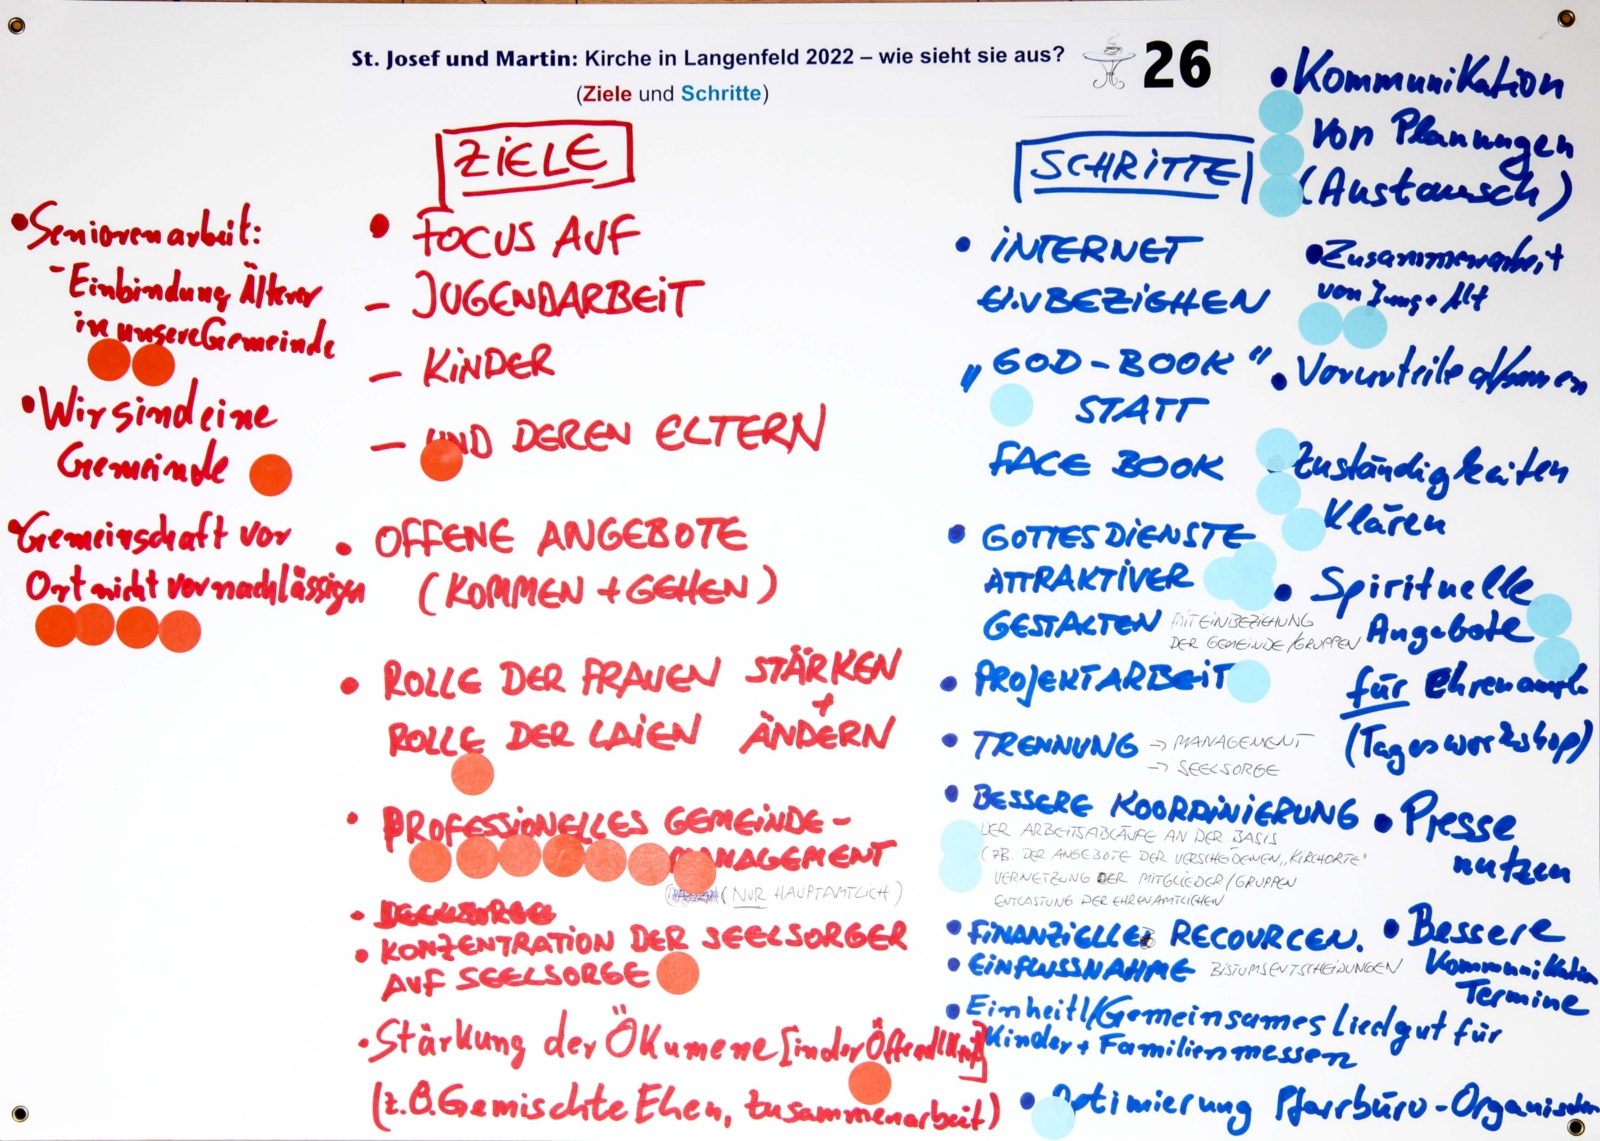 St. Josef und Martin: Kirche in Langenfeld 2022 – wie sieht sie aus?
(Ziele und Schritte)
26
• Seniorenarbeit:
- Einbindung Älterer
in unsere Gemeinde
• Wir sind eine
Gemeinde
• Gemeinschaft vor
Ort nicht vernachlässigen
ZIELE
• FOCUS AUF
– JUGENDARBEIT
– KINDER
– UND DEREN ELTERN
• OFFENE ANGEBOTE
(KOMMEN + GEHEN)
• ROLLE DER FRAUEN STÄRKEN
+
ROLLE DER LAIEN ÄNDERN
• PROFESSIONELLES GEMEINDE-
MANAGEMENT
(NUR HAUPTAMTLICH)
• KONZENTRATION DER SEELSORGER
AUF SEELSORGE
• Stärkung der Ökumene [in der Öffentlkt]
(z.B. Gemischte Ehen, Zusammenarbeit)
SCHRITTE
• INTERNET
EINBEZIEHEN
„GOD-BOOK"
STATT
FACE BOOK
• GOTTESDIENSTE
ATTRAKTIVER
GESTALTEN MITEINBEZIEHUNG
DER GEMEINDE/GRUPPEN
• PROJEKTARBEIT
• TRENNUNG → MANAGEMENT
→ SEELSORGE
• BESSERE KOORDINIERUNG
DER ARBEITSABLÄUFE AN DER BASIS
(ZB. DER ANGEBOTE DER VERSCHIEDENEN „KIRCHORTE'
VERNETZUNG DER MITGLIEDER/GRUPPEN
ENTLASTUNG DER EHRENAMTLICHEN
• FINANZIELLE RECOURCEN.
• EINFLUSSNAHME BISTUMSENTSCHEIDUNGEN
• Einheitl/Gemeinsames Liedgut für
Kinder + Familienmessen
• Optimierung Pfarrbüro-Organisation
• Kommunikation
von Planungen
(Austausch)
• Zusammenarbeit
von Jung + Alt
• Vorurteile abbauen
• Zuständigkeiten
Klären
• Spirituelle
Angebote
für Ehrenamtl.
(Tagesworkshop)
• Presse
nutzen
• Bessere
Kommunikation
Termine